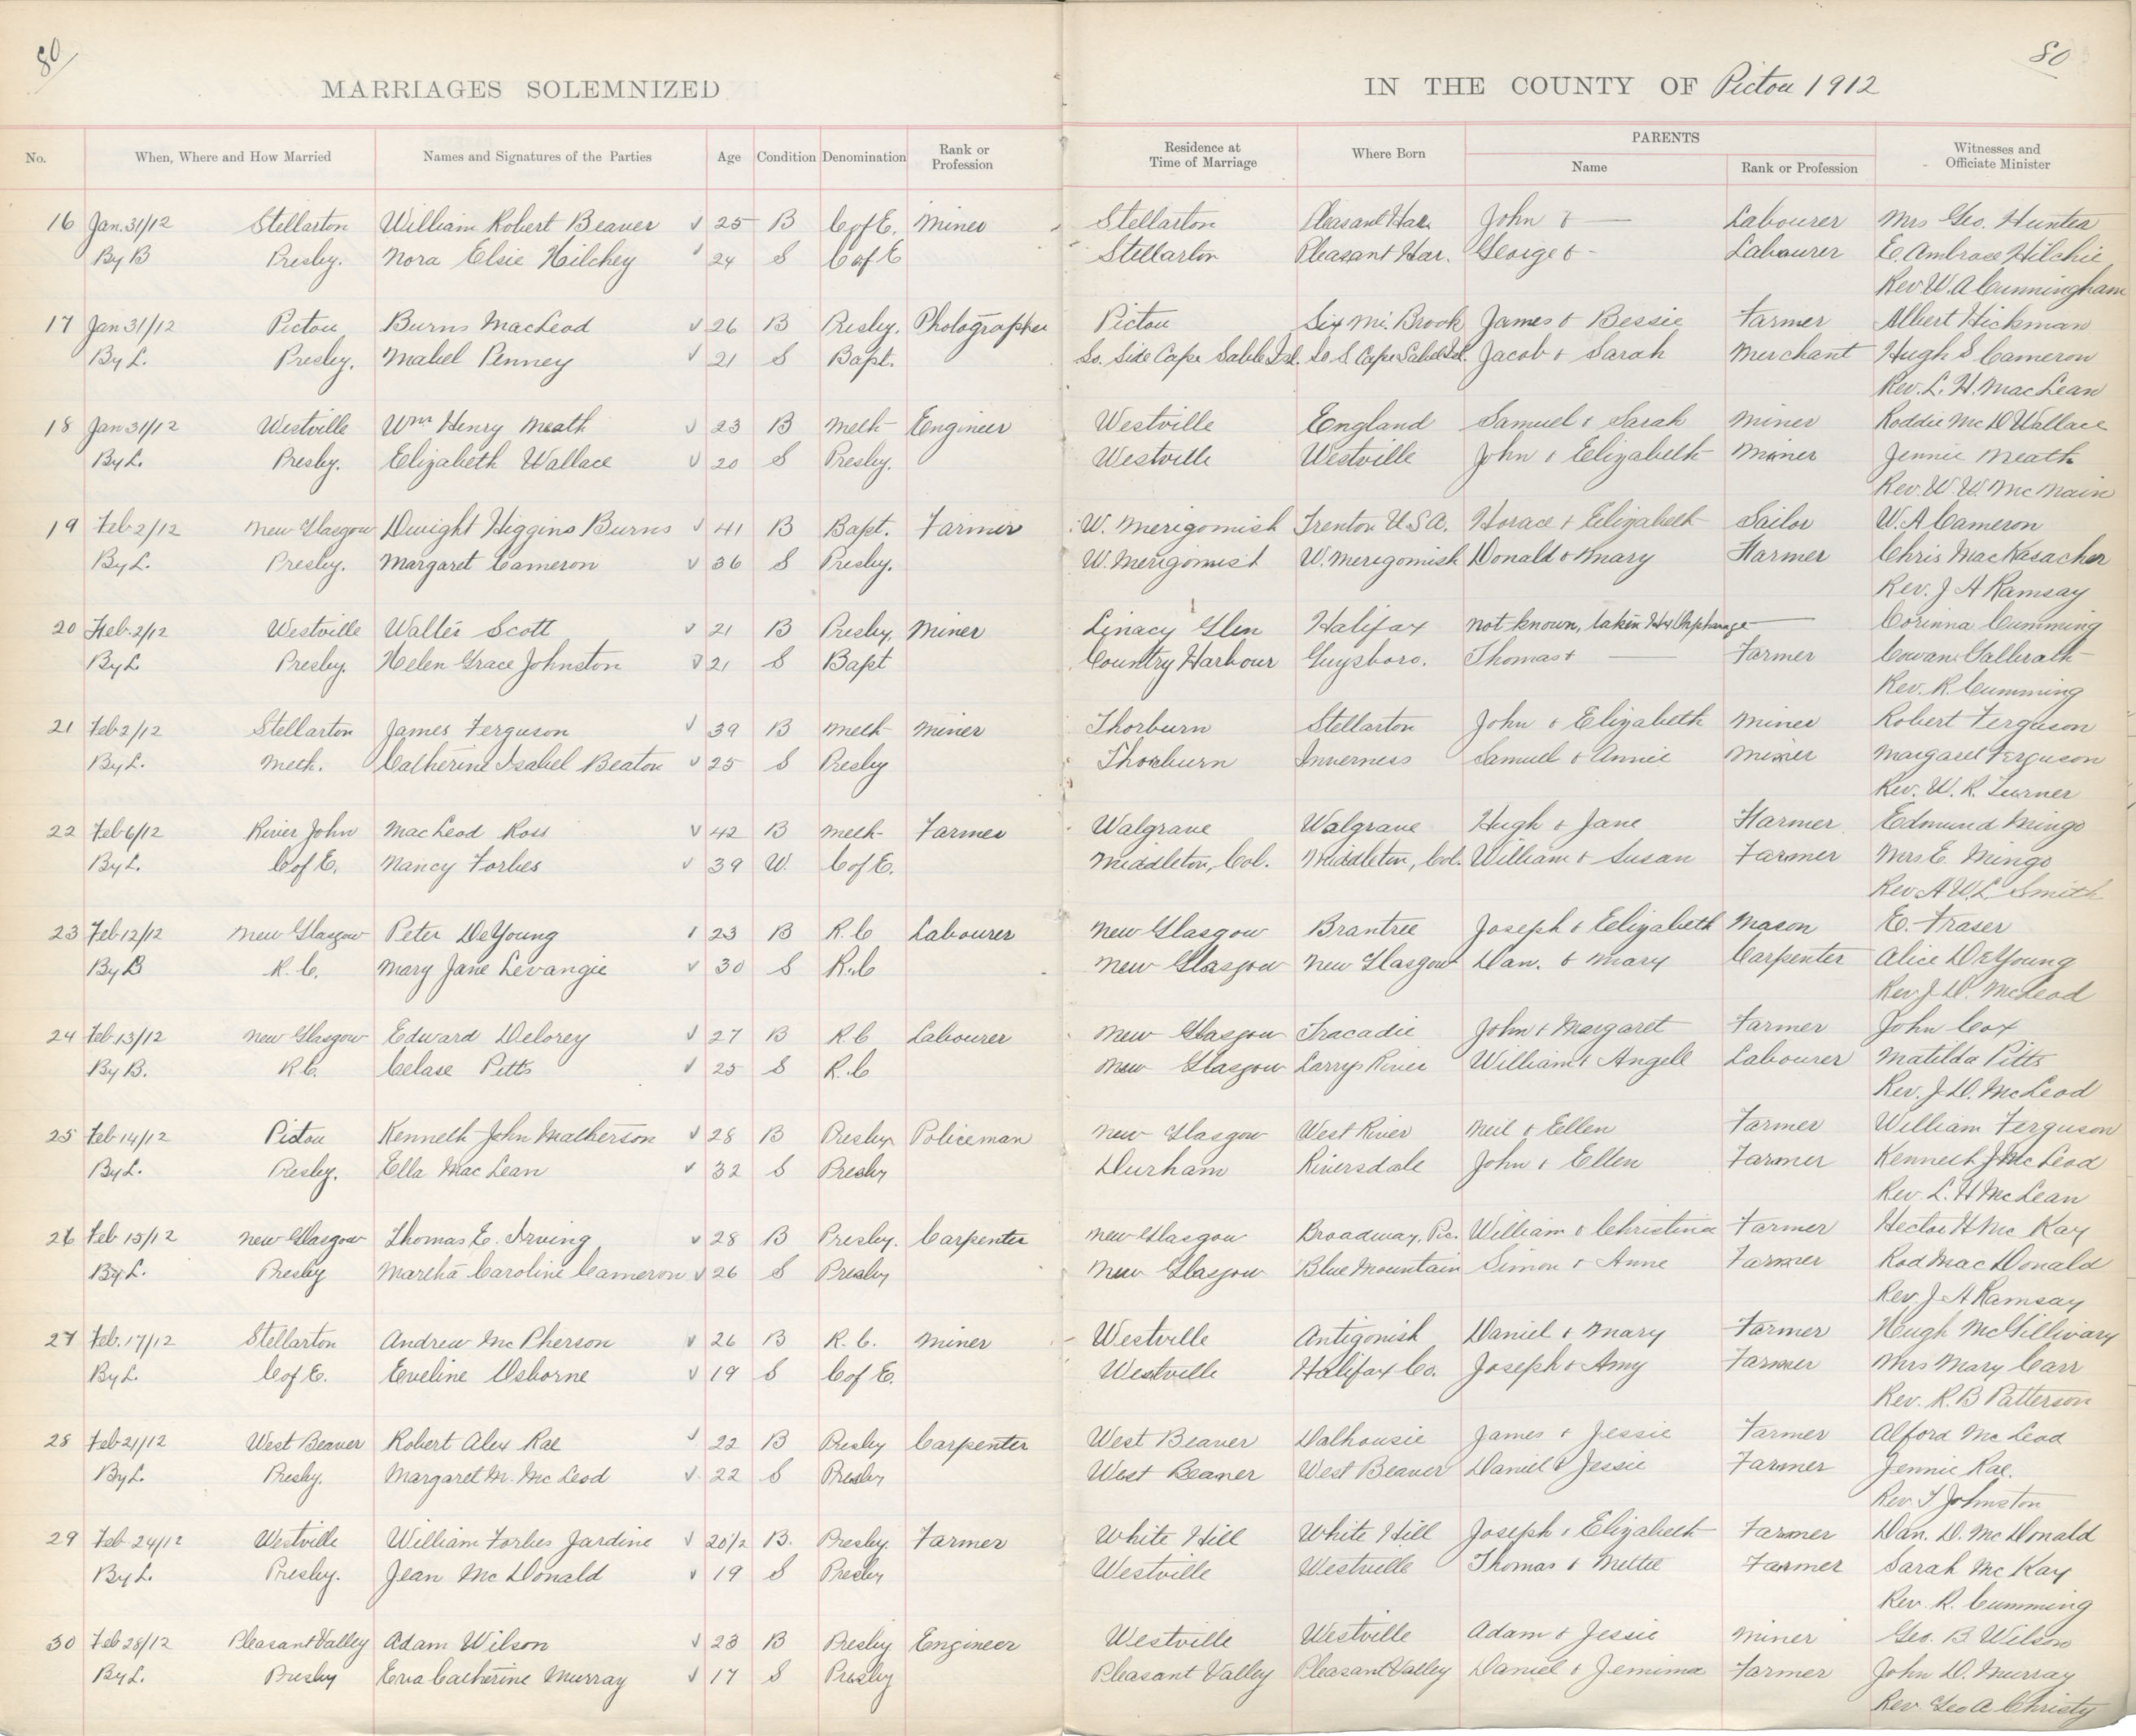 80 80
MARRIAGES SOLEMNIZED IN THE COUNTY OF Pictou 1912
No. When, Where and How Married Names and Signatures of the Parties Age Condition Denomination Rank or Profession Residence at Time of Marriage Where Born PARENTS Name Rank or Profession Witnesses and Officiate Minister
16 Jan. 31/12 Stellarton William Robert Beaver √ 25 B C of E. Miner Stellarton Pleasant Har. John & — Labourer Mrs Geo. Hunter
By B Presby. Nora Elsie Hilchey √ 24 S C of E Stellarton Pleasant Har. George & - Labourer E. Ambrose Hilchie
Rev W. A Cunningham
17 Jan 31/12 Pictou Burns MacLeod √ 26 B Presby. Photographer Pictou Six Mi. Brook James & Bessie Farmer Albert Hickman
By L. Presby. Mabel Penney √ 21 S Bapt. So. Side Cape Sable Isl. So S. Cape Sable Isl. Jacob & Sarah Merchant Hugh S Cameron
Rev. L. H. MacLean
18 Jan 31/12 Westville Wm Henry Meath √ 23 B Meth Engineer Westville England Samuel & Sarah Miner Roddie Mc D Wallace
By L. Presby. Elizabeth Wallace √ 20 S Presby. Westville Westville John & Elizabeth Miner Jennie Meath
Rev. W W. McNain
19 Feb 2/12 New Glasgow Dwight Higgins Burns √ 41 B Bapt. Farmer W. Merigomish Trenton U.S.A. Horace & Elizabeth Sailor W. A Cameron
By L. Presby. Margaret Cameron √ 36 S Presby. W. Merigomish W. Merigomish Donald & Mary Farmer Chris MacKasacher
Rev. J A Ramsay
20 Feb. 2/12 Westville Walter Scott √ 21 B Presby. Miner Linacy Glen Halifax not known, taken Hx Orphanage — Corinna Cumming
By L Presby. Helen Grace Johnston √ 21 S Bapt Country Harbour Guysboro. Thomas & — Farmer Cowan Galbrath
Rev. R. Cumming
21 Feb 2/12 Stellarton James Ferguson √ 39 B Meth Miner Thorburn Stellarton John & Elizabeth Miner Robert Ferguson
By L. Meth. Catherine Isabel Beaton √ 25 S Presby Thorburn Inverness Samuel & Annie Miner Margaret Ferguson
Rev. W. R. Turner
22 Feb 6/12 River John MacLeod Ross √ 42 B Meth Farmer Walgrave Walgrave Hugh & Jane Farmer Edmund Mingo
By L. C of E. Nancy Forbes √ 39 W. C of E. Middleton, Col. Middleton, Col. William & Susan Farmer Mrs E. Mingo
Rev A W. L. Smith
23 Feb 12/12 New Glasgow Peter DeYoung √ 23 B R. C Labourer New Glasgow Brantree Joseph & Elizabeth Mason E. Fraser
By B R. C. Mary Jane Levangie √ 30 S R. C New Glasgow New Glasgow Dan. & Mary Carpenter Alice DeYoung
Rev J. D. McLeod
24 Feb 13/12 New Glasgow Edward Delorey √ 27 B R. C Labourer New Glasgow Tracadie John & Margaret Farmer John Cox
By B. R C. Celase Pitts √ 25 S R. C New Glasgow Larrys River William & Angell Labourer Matilda Pitts
Rev. J. D. McLeod
25 Feb 14/12 Pictou Kenneth John Matherson √ 28 B Presby. Policeman New Glasgow West River Neil & Ellen Farmer William Ferguson
By L. Presby. Ella MacLean √ 32 S Presby Durham Riversdale John & Ellen Farmer Kenneth J McLeod
Rev. L. H McLean
26 Feb 15/12 New Glasgow Thomas E. Irving √ 28 B Presby. Carpenter New Glasgow Broadway, Pic. William & Christina Farmer Hector H McKay
By L. Presby Martha Caroline Cameron √ 26 S Presby New Glasgow Blue Mountain Simon & Anne Farmer Rod MacDonald
Rev. J A Ramsay
27 Feb. 17/12 Stellarton Andrew McPherson √ 26 B R. C. Miner Westville Antigonish Daniel & Mary Farmer Hugh McGillivary
By L. C of E. Eveline Osborne √ 19 S C of E. Westville Halifax Co. Joseph & Amy Farmer Mrs Mary Carr
Rev. R. B Patterson
28 Feb 21/12 West Beaver Robert Alex Rae √ 22 B Presby Carpenter West Beaver Dalhousie James & Jessie Farmer Alford McLeod
By L. Presby. Margaret M. McLeod √ 22 S Presby West Beaver West Beaver Daniel & Jessie Farmer Jennie Rae.
Rev. T Johnston
29 Feb 24/12 Westville William Forbes Jardine √ 20 1/2 B. Presby. Farmer White Hill White Hill Joseph & Elizabeth Farmer Dan. D. McDonald
By L. Presby. Jean McDonald √ 19 S Presby Westville Westville Thomas & Mettie Farmer Sarah McKay
Rev. R. Cumming
30 Feb 28/12 Pleasant Valley Adam Wilson √ 23 B Presby Engineer Westville Westville Adam & Jessie Miner Geo. B. Wilson
By L. Presby Eva Catherine Murray √ 17 S Presby Pleasant Valley Pleasant Valley Daniel & Jemima Farmer John D. Murray
Rev. Geo A Christy